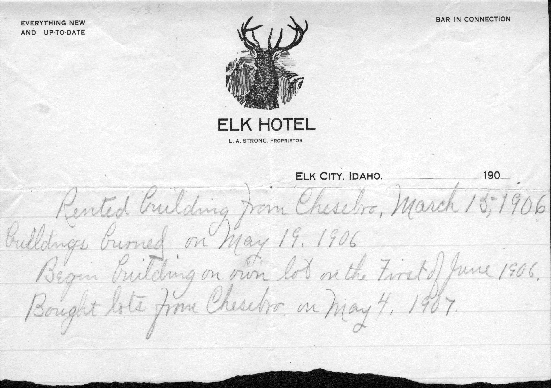 EVERYTHING NEW
AND UP-TO-DATE
BAR IN CONNECTION
ELK HOTEL
L. A. STRONG, PROPRIETOR
ELK CITY, IDAHO. 190
Rented building from Chesebro, March 15, 1906
Buildings burned on May 19, 1906
Begin building on own lot on the First of June 1906.
Bought lots from Chesebro on May 4, 1907.